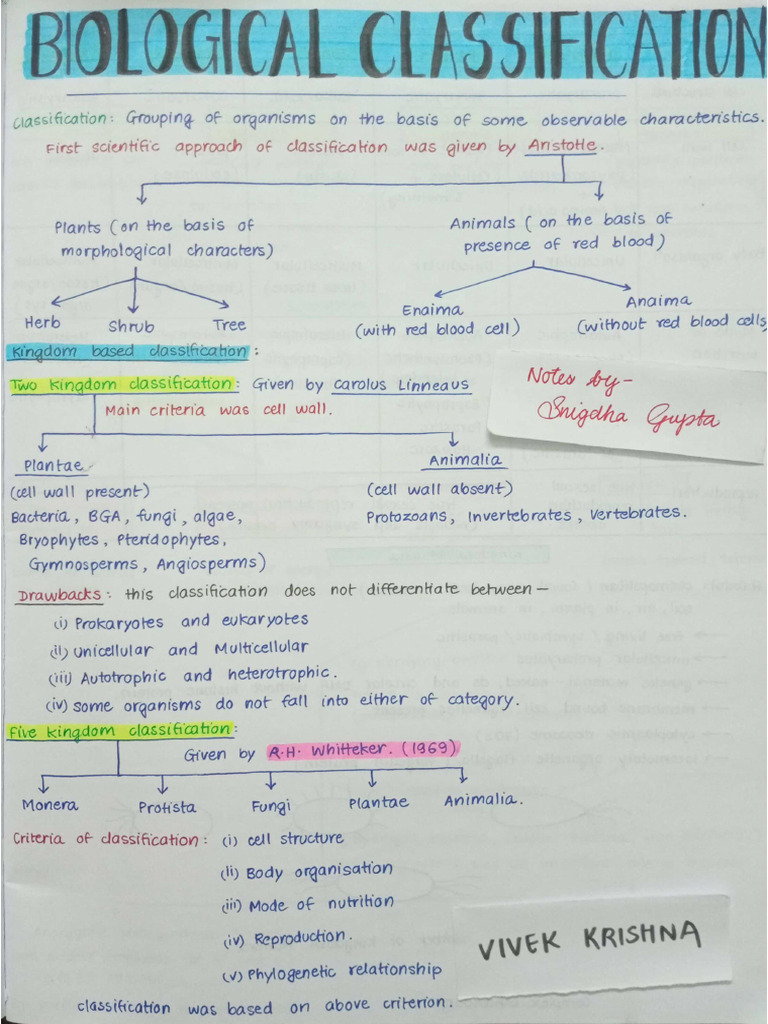 BIOLOGICAL CLASSIFICATION
Classification: Grouping of organisms on the basis of some observable characteristics.
First scientific approach of classification was given by Aristotle.
Plants (on the basis of
morphological characters)
Animals (on the basis of
presence of red blood)
Herb
Shrub
Tree
Enaima
(with red blood cell)
Anaima
(without red blood cells
Kingdom based classification:
Two Kingdom classification: Given by Carolus Linneaus
Main criteria was cell wall.
Notes by-
Snigdha Gupta
Plantae
(cell wall present)
Bacteria, BGA, fungi, algae,
Bryophytes, Pteridophytes,
Gymnosperms, Angiosperms)
Animalia
(cell wall absent)
Protozoans, Invertebrates, Vertebrates.
Drawbacks: this classification does not differentiate between-
(i) Prokaryotes and eukaryotes
(ii) Unicellular and Multicellular
(iii) Autotrophic and heterotrophic.
(iv) some organisms do not fall into either of category.
Five kingdom classification:
Given by R.H. Whitteker. (1969)
Monera
Protista
Fungi
Plantae
Animalia.
Criteria of classification: (i) cell structure
(ii) Body organisation
(iii) Mode of nutrition
(iv) Reproduction.
(v) Phylogenetic relationship
classification was based on above criterion.
VIVEK KRISHNA